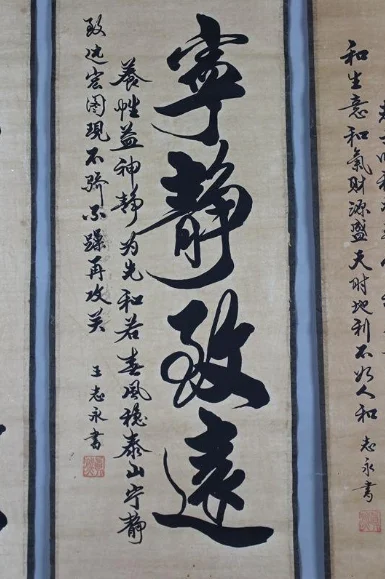 寧靜致遠
養性益神靜为先和若春风稳泰山宁静
致远宏图现不骄不躁再攻关
王志永書
和生意和氣財源盛天时地利不如人和
志永書